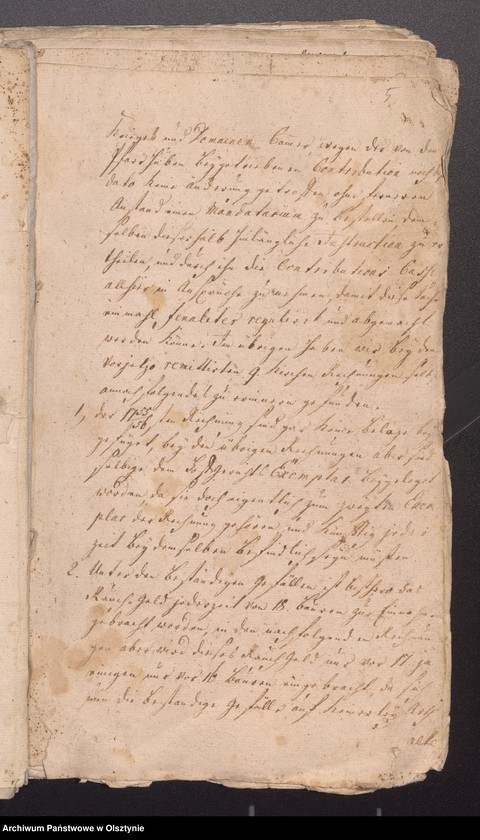 5.
Krieges und Domainen Cam̅er wegen der von den
Pfarrhuben beygetriebenen Contribution noch bis
dato keine Änderung getroffen ohne ferneren
Anstand einen Mandatarium zu bestellen dem
selben dieserhalb zulängliche Instruction zu er
theilen, und durch ihn die Contributions Casse
allhier in Anspruch zu nehmen, damit diese Sache
einmahl finaliter regulirt und abgemacht
werden könne. Im übrigen haben wir bey den
vorjetzo remittirten Kirchen Rechnungen
annoch folgendes zu erinnern gefunden.
1, der 1755/56 ten Rechnung sind gar keine Beläge bey
gefüget, bey den übrigen Rechnungen aber sind
selbige dem Exemplar beygeleget
worden da sie doch eigentlich zum zweyten Exem
plar der Rechnung gehören und künftig jeder
zeit bey demselben befindlich seyn müssen
2. Unter den beständigen Gefällen ist bishero das
Rauch Geld jederzeit von 18. Bauren zur Einnahme
gebracht worden, in den nachfolgenden Rechnun
gen aber wird dieses Rauch Geld nur vor 17. ja
einigen nur vor 16 Bauren eingebracht, da
nun die beständige Gefälle auf keinerley Arth
Archiwum Państwowe w Olsztynie